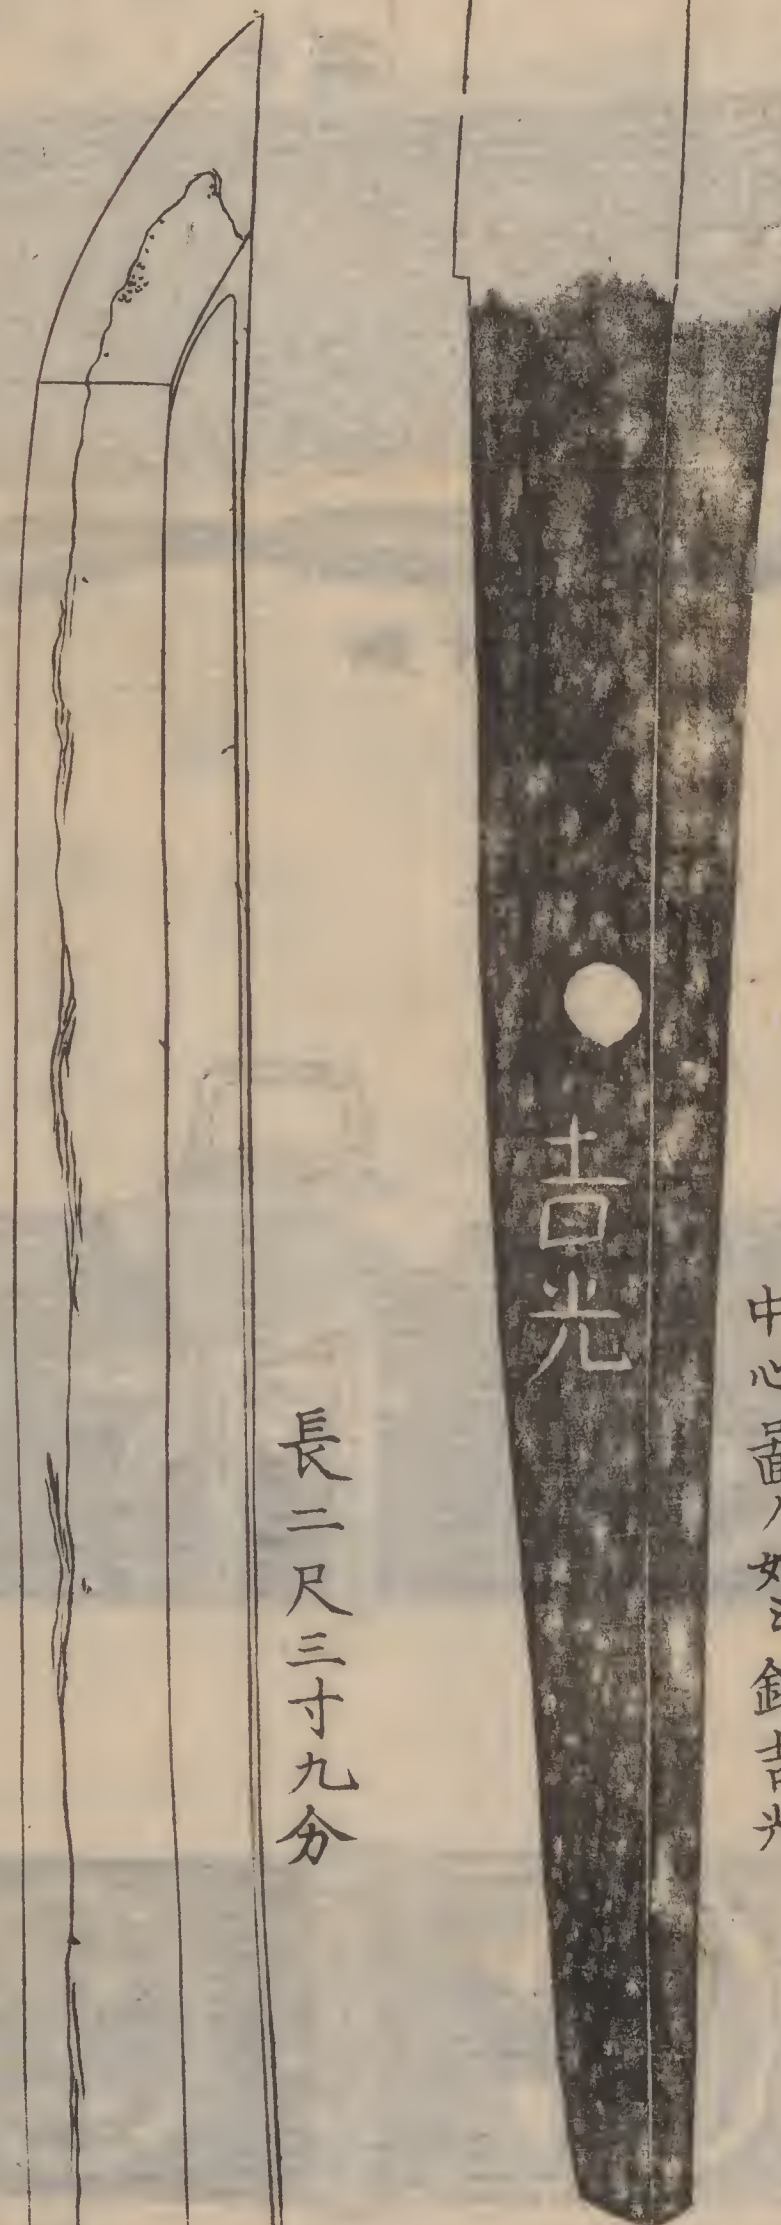 中心啚ノ如シ銘吉光
吉光
長二尺三寸九分